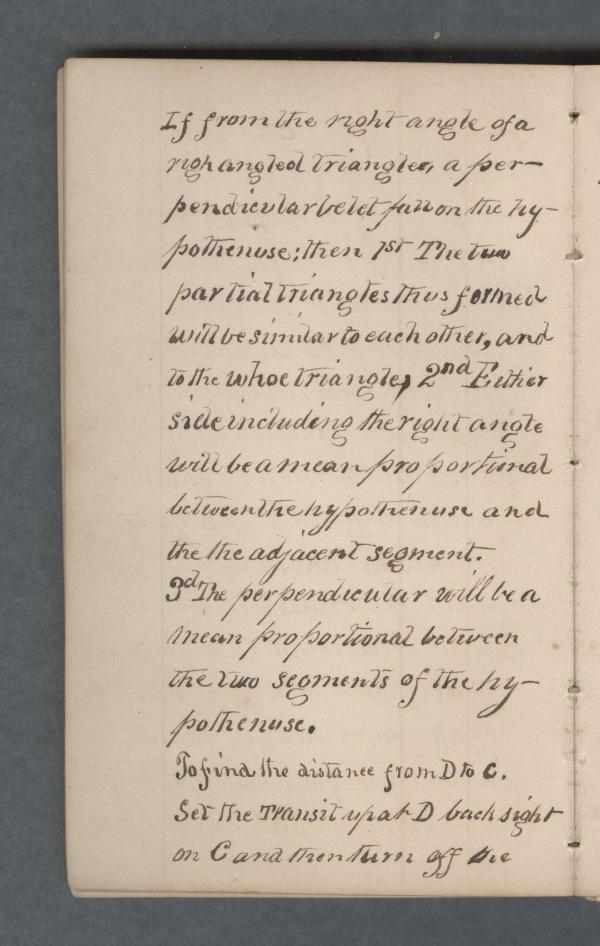 If from the right angle of a
righ angled triangles, a per-
pendicular be let fall on the hy-
pothenuse; then 1st The two
partial triangles thus formed
will be similar to each other, and
to the whoe triangle, 2nd Either
side including the right angle
will be a mean proportional
between the hypothenuse and
the the adjacent segment.
3d The perpendicular will be a
mean proportional between
the two segments of the hy-
pothenuse.
To find the distance from D to C.
Set the Transit up at D back sight
on C and then turn off the